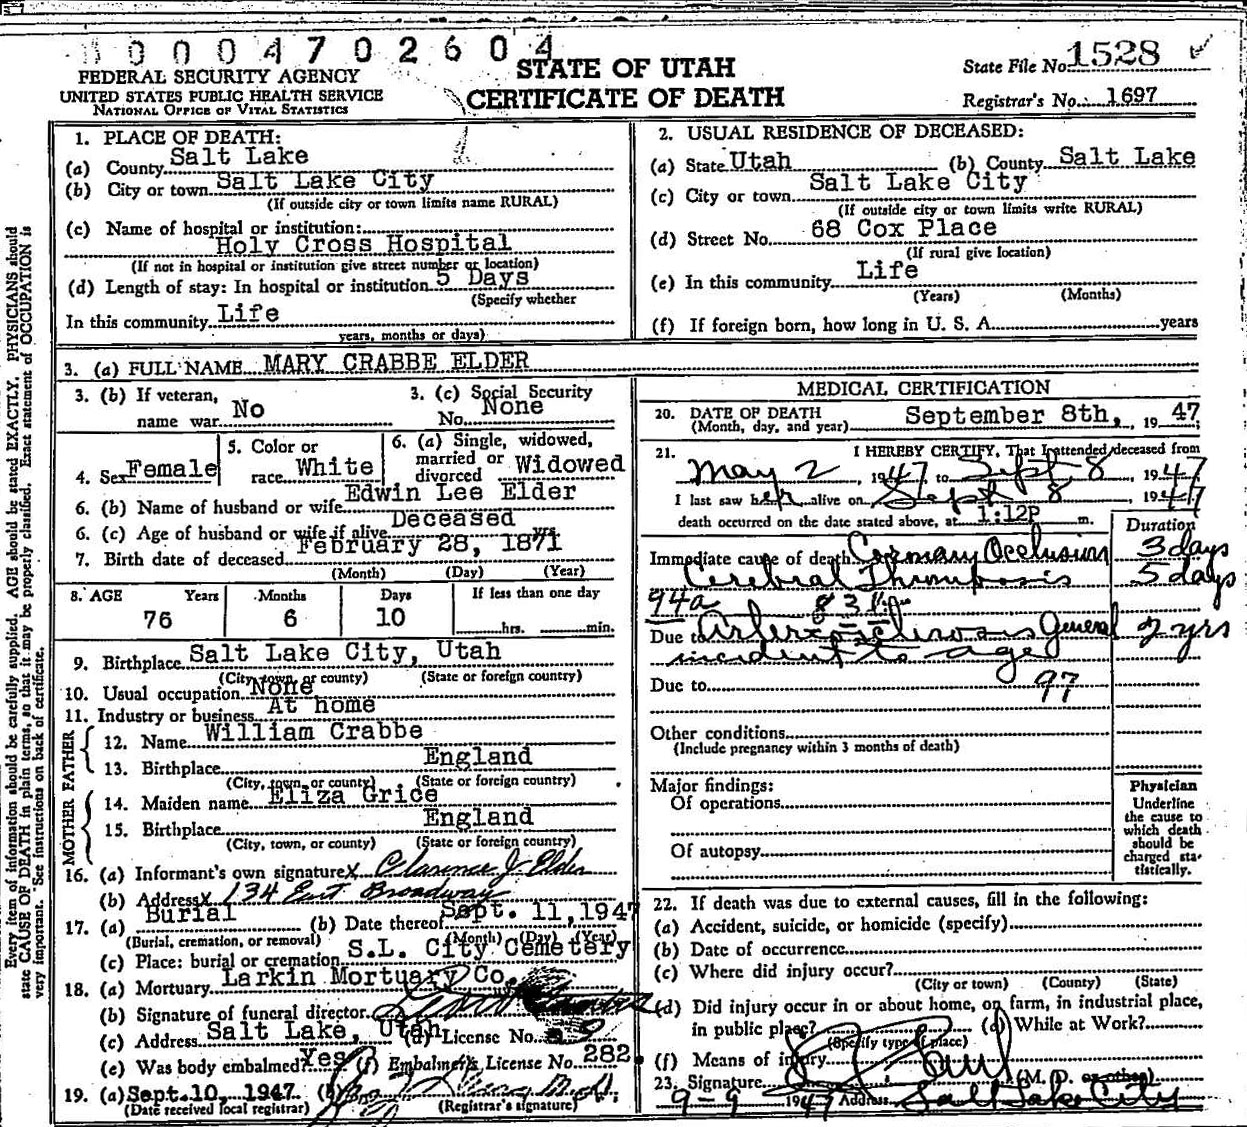 0004702604
FEDERAL SECURITY AGENCY
UNITED STATES PUBLIC HEALTH SERVICE
NATIONAL OFFICE OF VITAL STATISTICS
STATE OF UTAH
CERTIFICATE OF DEATH
State File No. 1528
Registrar's No. 1697
Every item of information should be carefully supplied. AGE should be stated EXACTLY. PHYSICIANS should
state CAUSE OF DEATH in plain terms, so that it may be properly classified. Exact statement of OCCUPATION is
very important. See instructions on back of certificate.
1. PLACE OF DEATH:
(a) County Salt Lake
(b) City or town Salt Lake City
(If outside city or town limits name RURAL)
(c) Name of hospital or institution:
Holy Cross Hospital
(If not in hospital or institution give street number or location)
(d) Length of stay: In hospital or institution 5 Days
(Specify whether
In this community Life
years, months or days)
2. USUAL RESIDENCE OF DECEASED:
(a) State Utah (b) County Salt Lake
(c) City or town Salt Lake City
(If outside city or town limits write RURAL)
(d) Street No. 68 Cox Place
(If rural give location)
(e) In this community Life
(Years) (Months)
(f) If foreign born, how long in U. S. A. years
3. (a) FULL NAME MARY CRABBE ELDER
3. (b) If veteran,
name war No
3. (c) Social Security
No. None
4. Sex Female
5. Color or
race White
6. (a) Single, widowed,
married or
divorced Widowed
6. (b) Name of husband or wife Edwin Lee Elder
6. (c) Age of husband or wife if alive Deceased yrs
7. Birth date of deceased February 28, 1871
(Month) (Day) (Year)
8. AGE Years Months Days If less than one day
76 6 10 hrs. min.
9. Birthplace Salt Lake City, Utah
(City, town, or county) (State or foreign country)
10. Usual occupation None
11. Industry or business At home
FATHER
12. Name William Crabbe
13. Birthplace England
(City, town, or county) (State or foreign country)
MOTHER
14. Maiden name Eliza Grice
15. Birthplace England
(City, town, or county) (State or foreign country)
16. (a) Informant's own signature X Clarence J. Elder
(b) Address X 134 East Broadway
17. (a) Burial (b) Date thereof Sept. 11, 1947
(Burial, cremation, or removal) (Month) (Day) (Year)
(c) Place: burial or cremation S.L. City Cemetery
18. (a) Mortuary Larkin Mortuary Co.
(b) Signature of funeral director
(c) Address Salt Lake, Utah (d) License No.
(e) Was body embalmed? Yes (f) Embalmer's License No. 282.
19. (a) Sept. 10, 1947. (b)
(Date received local registrar) (Registrar's signature)
MEDICAL CERTIFICATION
20. DATE OF DEATH
(Month, day, and year) September 8th, 1947
21. I HEREBY CERTIFY, That I attended deceased from
May 2, 1947, to Sept 8, 1947
I last saw her alive on Sept 8, 1947
death occurred on the date stated above, at 1:12P m.
Duration
Immediate cause of death Coronary Occlusion 3 days
Cerebral Thrombosis 5 days
94a
Due to Arteriosclerosis General 2 yrs
incident to age
Due to 97
Other conditions
(Include pregnancy within 3 months of death)
Major findings:
Of operations
Of autopsy
Physician
Underline
the cause to
which death
should be
charged sta-
tistically.
22. If death was due to external causes, fill in the following:
(a) Accident, suicide, or homicide (specify)
(b) Date of occurrence
(c) Where did injury occur?
(City or town) (County) (State)
(d) Did injury occur in or about home, on farm, in industrial place,
in public place? (e) While at Work?
(Specify type of place)
(f) Means of injury
23. Signature (M. D. or other)
9-9 1947 Address Salt Lake City